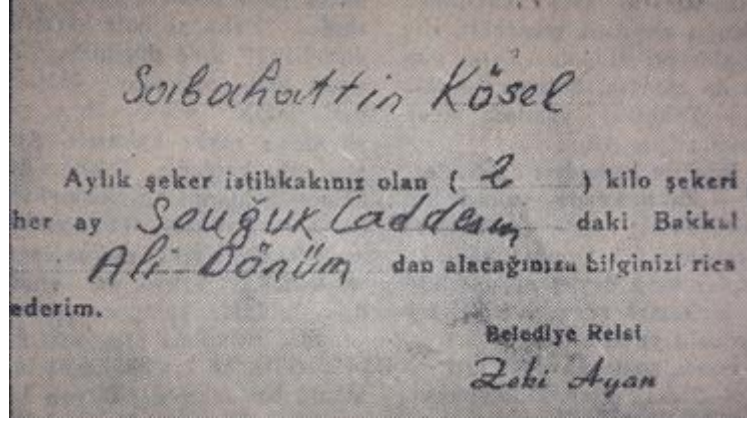 Sabahattin Kösel
Aylık şeker istihkakınız olan ( 2 ) kilo şekeri
her ay Souğuk Caddesın daki Bakkal
Ali Dönüm dan alacağınıza bilginizi rica
ederim.
Belediye Reisi
Zeki Ayan